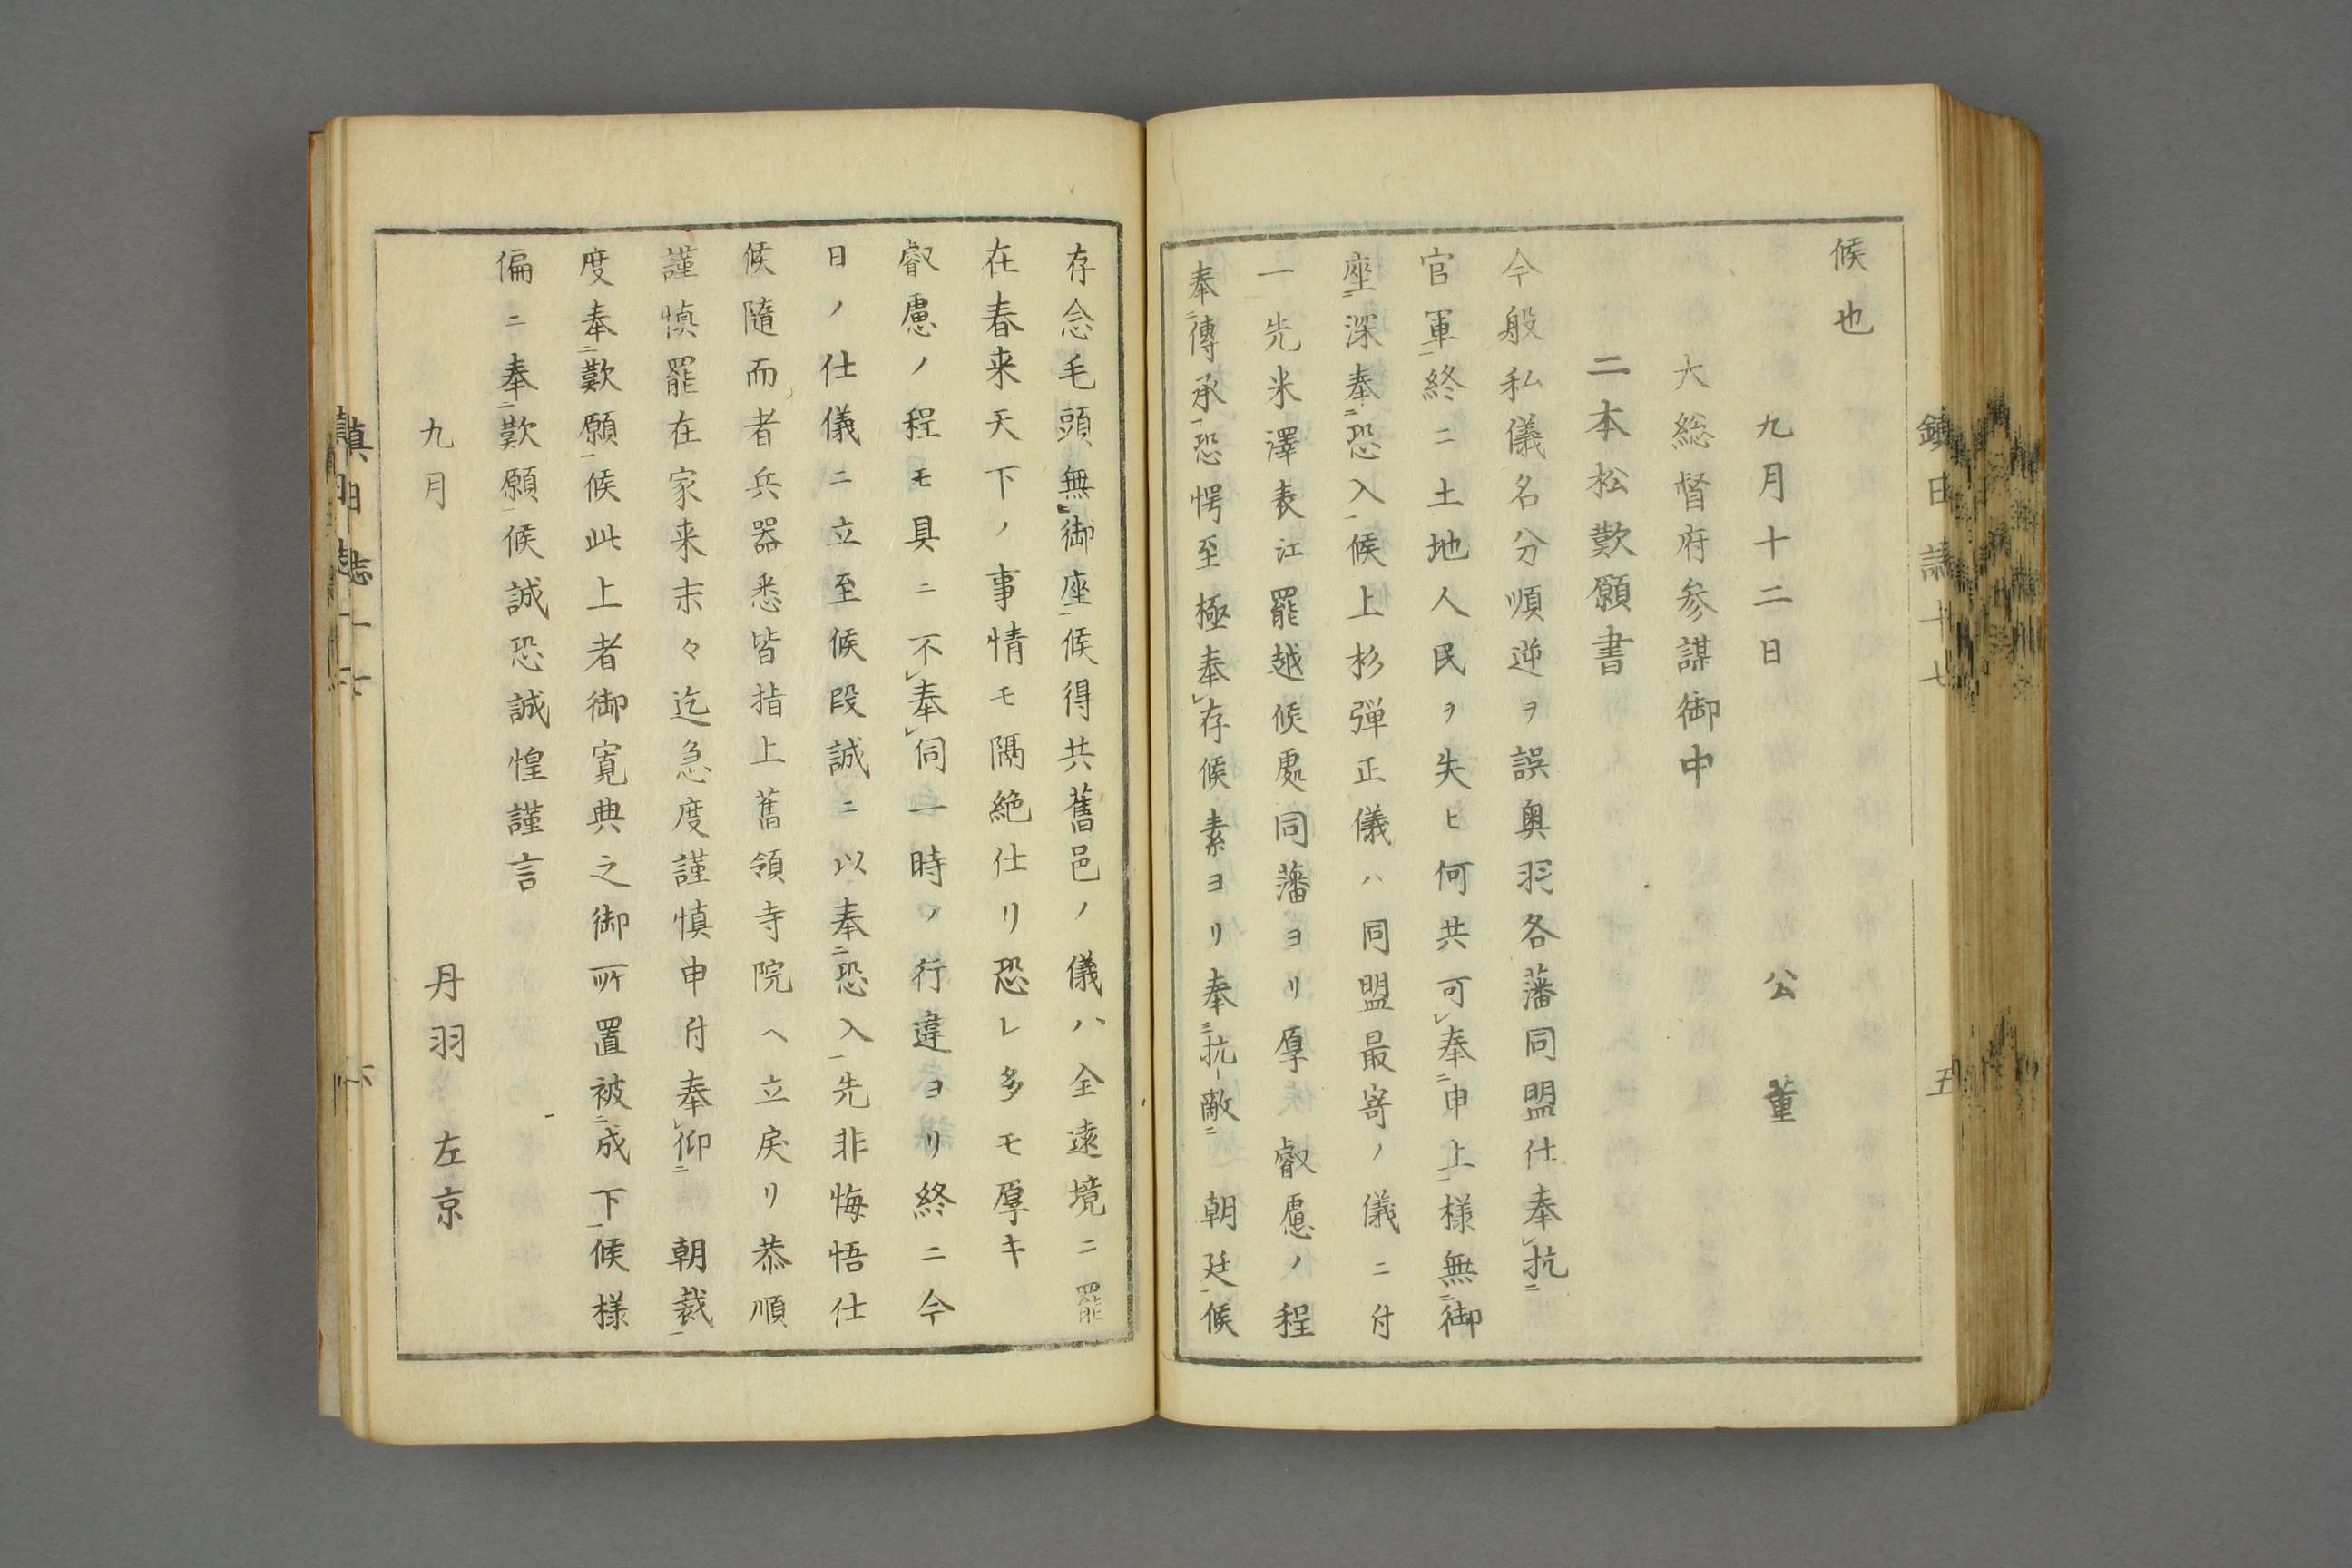 候也
九月十二日　公董
大総督府参謀御中
二本松歎願書
今般私儀名分順逆ヲ誤奥羽各藩同盟仕奉レ抗二
官軍一終ニ土地人民ヲ失ヒ何共可レ奉二申上一様無二御
座一深奉二恐入一候上杉弾正儀ハ同盟最寄ノ儀ニ付
一先米澤表江罷越候處同藩ヨリ厚　叡慮ノ程
奉二傳承一恐愕至極奉レ存候素ヨリ奉三抗敵二　朝廷一候
存念毛頭無レ御座二候得共舊邑ノ儀ハ全遠境ニ罷
在春来天下ノ事情モ隔絶仕リ恐レ多モ厚キ
叡慮ノ程モ具ニ不レ奉レ伺一時ノ行違ヨリ終ニ今
日ノ仕儀ニ立至候段誠ニ以奉二恐入一先非悔悟仕
候隨而者兵器悉皆指上舊領寺院ヘ立戻リ恭順
謹慎罷在家来末々迄急度謹慎申付奉レ仰二　朝裁一
度奉二歎願一候此上者御寛典之御所置被二成下一候様
偏ニ奉二歎願一候誠恐誠惶謹言
九月　丹羽左京
鎮日誌十七
五
六